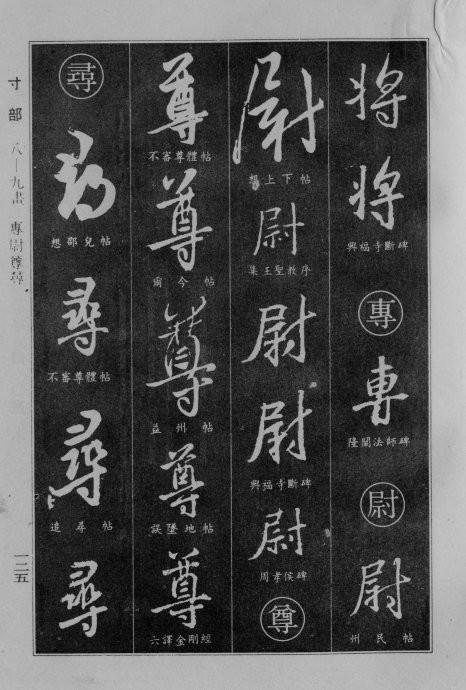 將
將
興福寺斷碑
專
專
隆闡法師碑
尉
尉
州民帖
尉
想上下帖
尉
集王聖教序
尉
尉
興福寺斷碑
尉
周孝侯碑
尊
尊
不審尊體帖
尊
爾今帖
尊
益州帖
尊
誤墜地帖
尊
六譯金剛經
尋
尋
想郡兒帖
尋
不審尊體帖
尋
追尋帖
尋
寸部 八—九畫 專尉尊尋
一三五